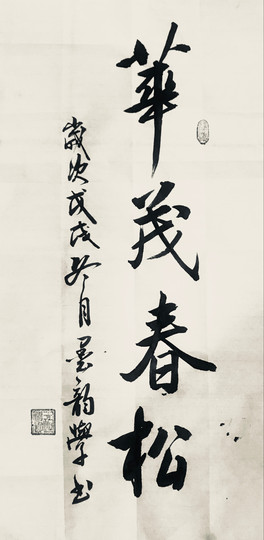 華茂春松
歲次戊戌冬月墨韵學書